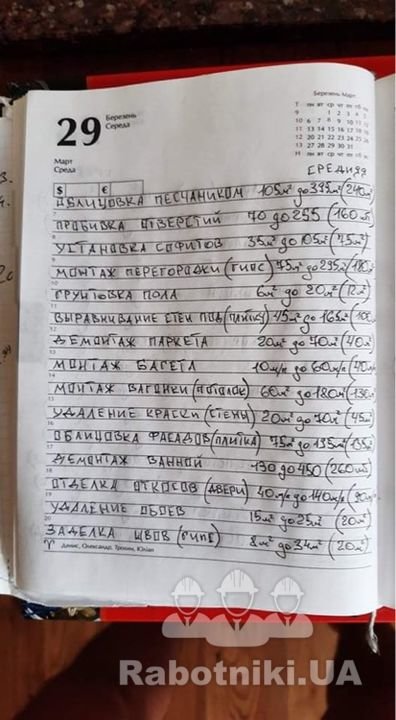 Березень Март
Т пн вт ср чт пт сб нд
9 1 2 3 4 5
10 6 7 8 9 10 11 12
11 13 14 15 16 17 18 19
12 20 21 22 23 24 25 26
13 27 28 29 30 31
29 Березень
Середа
Март
Среда
СРЕДИЯЯ
$ €
ОБЛИЦОВКА ПЕСЧАНИКОМ 105м² до 395м² (240м²)
ПРОБИВКА ОТВЕРСТИЙ 70 до 255 (160шт)
УСТАНОВКА СОФИТОВ 35м² до 105м² (75м²)
МОНТАЖ ПЕРЕГОРОДКИ (ГИПС) 75м² до 295м² (180
ГРУНТОВКА ПОЛА 6м² до 20м² (12м²)
ВЫРАВНИВАНИЕ СТЕН ПОД (ПЛИТКУ) 45м² до 165м² (105
ДЕМОНТАЖ ПАРКЕТА 20м² до 70м² (40м²)
МОНТАЖ БАГЕТА 10м/п до 60м/п (40м/п
МОНТАЖ ВАГОНКИ (ПОТОЛОК) 60м² до 180м² (130м²
УДАЛЕНИЕ КРАСКИ (СТЕНЫ) 20м² до 70м² (45м²)
ОБЛИЦОВКА ФАСАДОВ (ПЛИТКА) 75м² до 135м²
ДЕМОНТАЖ ВАННОЙ 130 до 450 (260шт)
ОТДЕЛКА ОТКОСОВ (ДВЕРИ) 40м/п до 140м/п (90м/п
УДАЛЕНИЕ ОБОЕВ 15м² до 25м² (20м²)
ЗАДЕЛКА ШВОВ (ГИПС) 8м² до 34м² (20м²)
Денис, Олександр, Трохим, Юліан
Rabotniki.UA